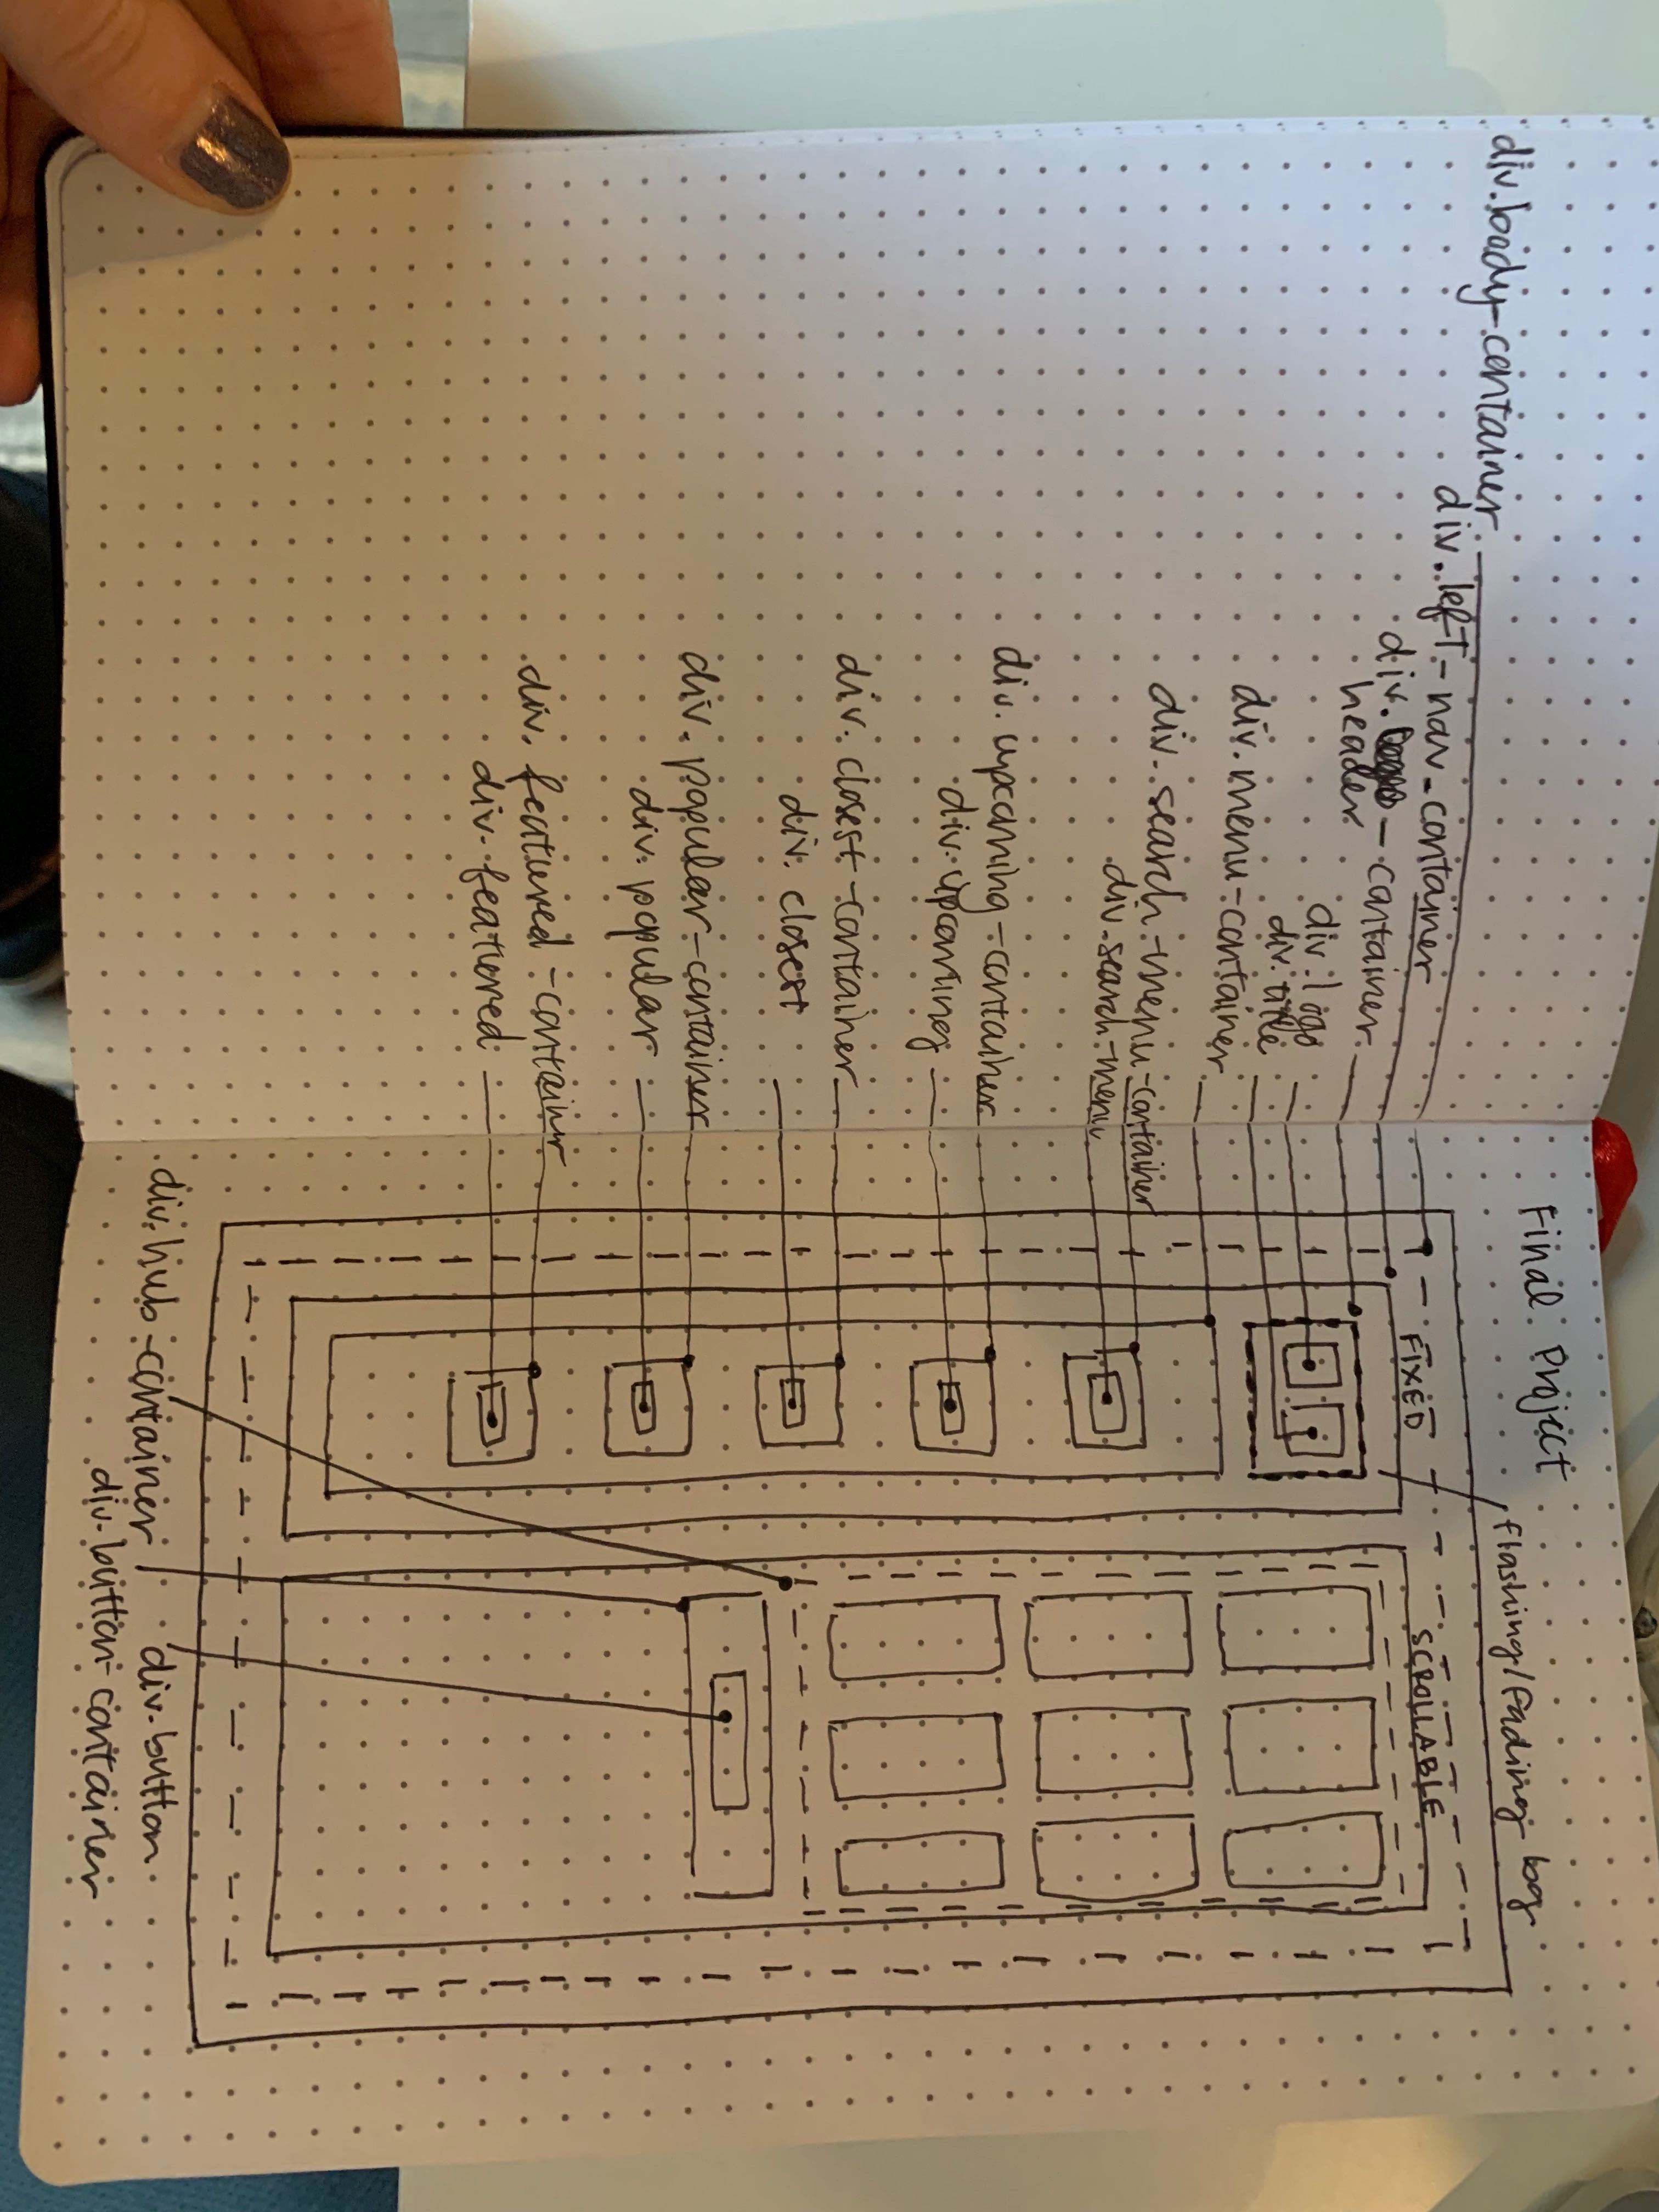 Final Project
div.body-container
div.left-nav-container
div. - container
header
div.logo
div.title
div.menu-container
div.search-menu-container
div.search-menu
div.upcoming-container
div.upcoming
div.closest-container
div.closest
div.popular-container
div.popular
div.featured-container
div.featured
flashing/fading log
FIXED
SCROLLABLE
div.hub-container
div.button
div.button-container